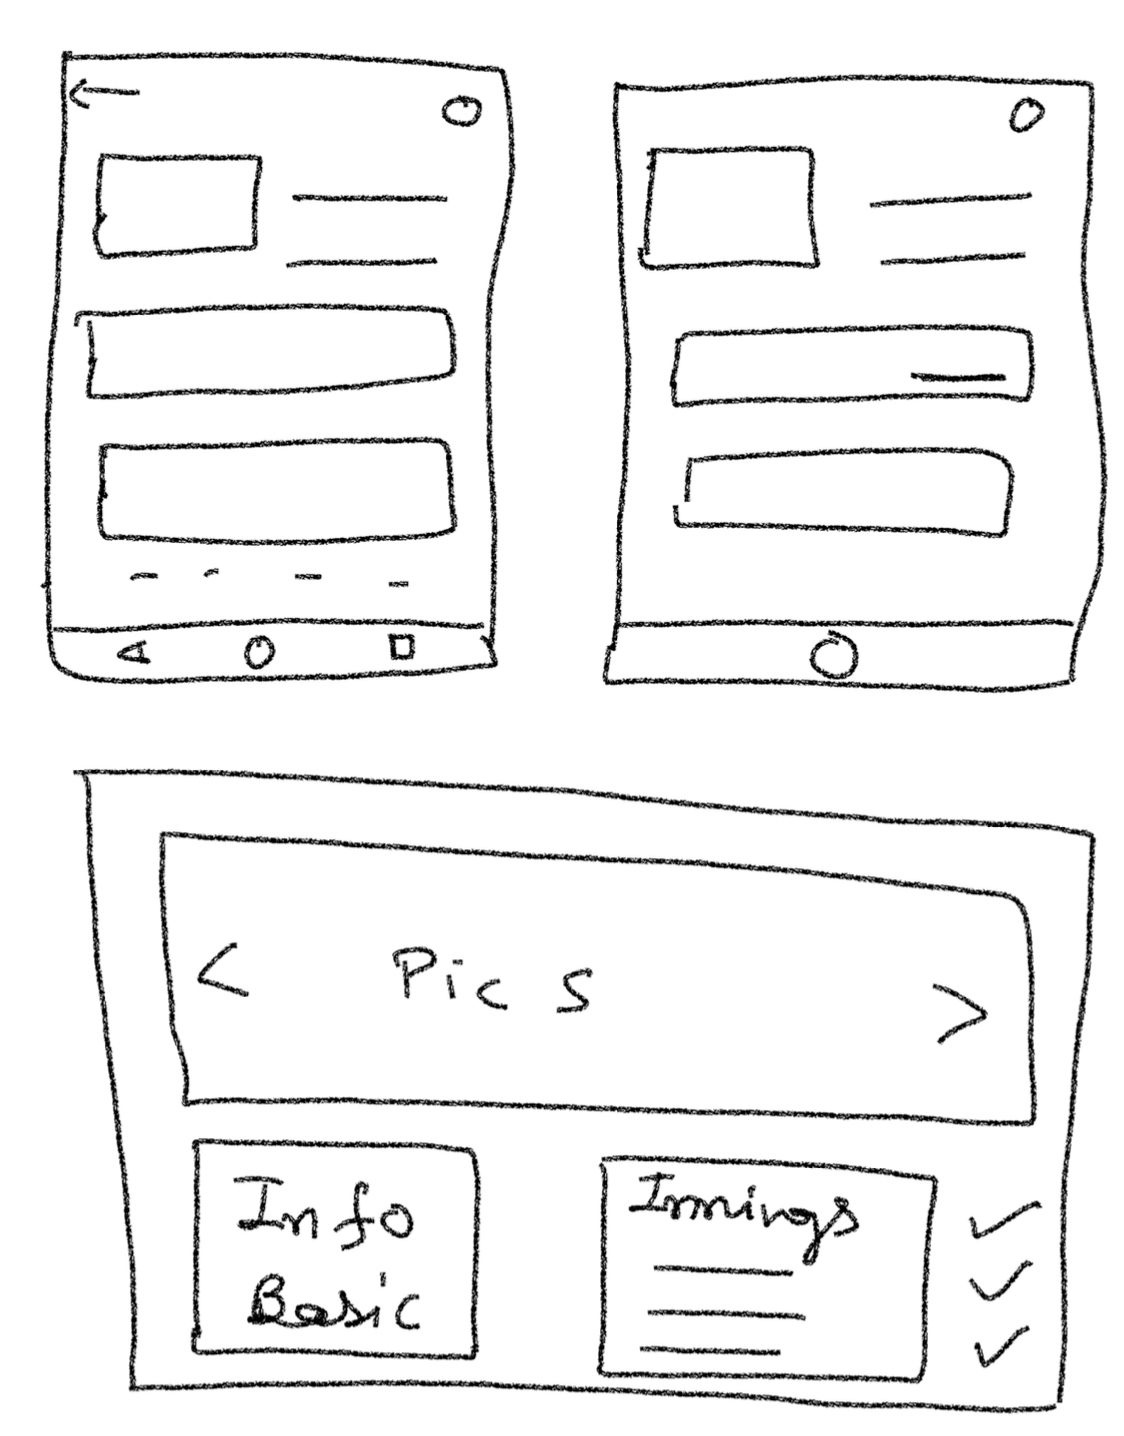 < Pics >
Info
Basic
Innings